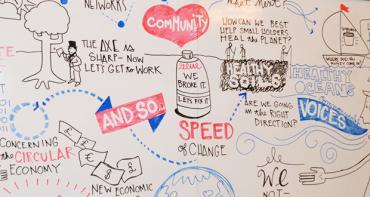 NETWORKS
COMMUNITY
HOW CAN WE BEST
HELP SMALL HOLDERS
HEAL THE PLANET?
THE AXE IS
SHARP- NOW
LET'S GET TO WORK
WE BROKE IT
LET'S FIX IT
HEALTHY
SOILS
HEALTHY
OCEANS
AND SO..
ARE WE GOING
IN THE RIGHT
DIRECTION?
VOICES
SPEED
OF CHANGE
CONCERNING
the CIRCULAR
ECONOMY
NEW ECONOMIC
We
NOT